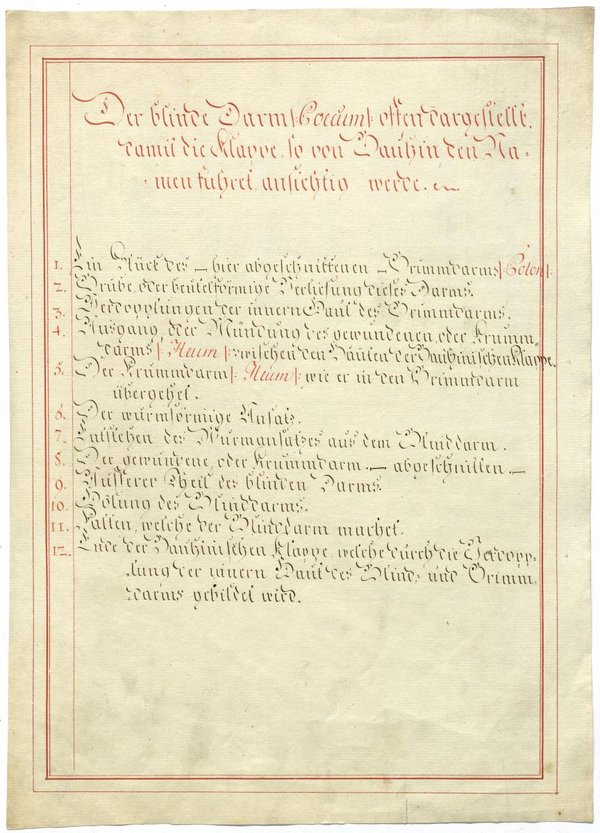 Der blinde Darm |: Coecum :| offen dargestellt,
damit die Klappe, so von Bauhin den Na-
men führet, ansichtig werde.
1. Ein Stück des – hier abgeschnittenen – Grimmdarms |: Colon :|
2. Grube, oder beutelförmige Vertiefung dieses Darms.
3. Verdopplungen der innern Haut des Grimmdarms.
4. Ausgang, oder Mündung des gewundenen, oder Krumm-
darms |: Ileum :| zwischen den Häuten der Bauhinischen Klappe.
5. Der Krummdarm |: Ileum :| wie er in den Grimmdarm
übergehet.
6. Der wurmförmige Ansatz.
7. Entstehen des Wurmansatzes aus dem Blinddarm.
8. Der gewundene, oder Krummdarm – abgeschnitten. –
9. Äusserer Theil des blinden Darms.
10. Hölung des Blinddarms.
11. Falten, welche der Blinddarm machet.
12. Ende der Bauhinischen Klappe, welche durch die Verdopp-
lung der innern Haut des Blind- und Grimm-
darms gebildet wird.